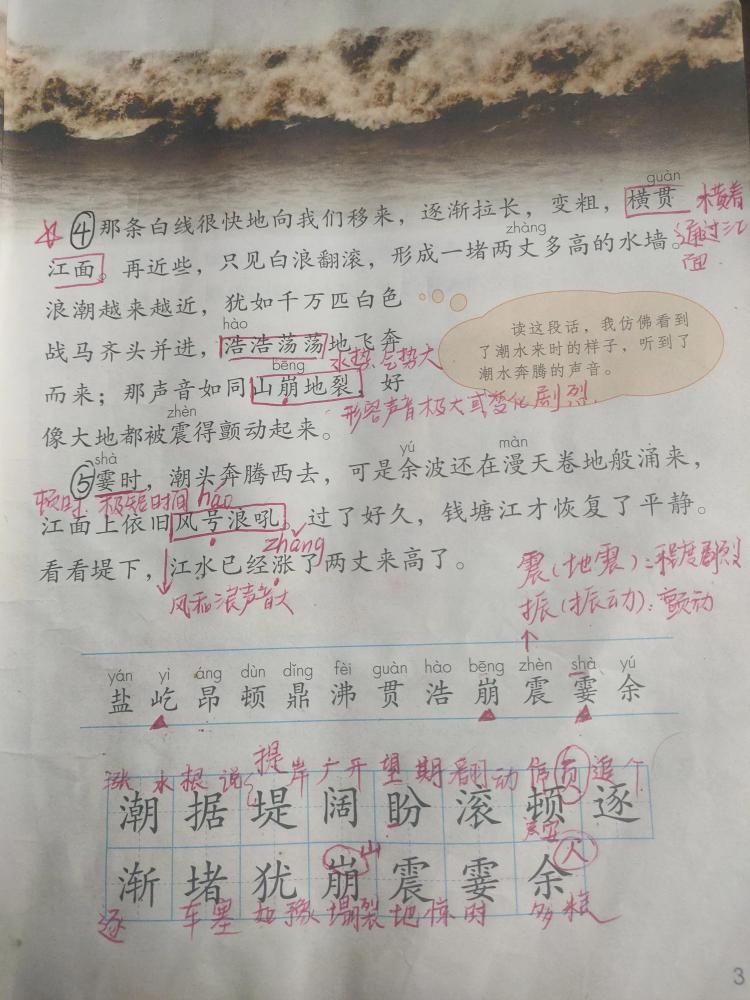 guàn
④那条白线很快地向我们移来，逐渐拉长，变粗，横贯 横着
zhàng 通过江
江面。再近些，只见白浪翻滚，形成一堵两丈多高的水墙。 面
浪潮越来越近，犹如千万匹白色
hào
战马齐头并进，浩浩荡荡地飞奔
水势、气势大
bēng
而来；那声音如同山崩地裂，好
形容声音极大或变化剧烈
zhèn
像大地都被震得颤动起来。
读这段话，我仿佛看到
了潮水来时的样子，听到了
潮水奔腾的声音。
shà yú màn
⑤霎时，潮头奔腾西去，可是余波还在漫天卷地般涌来，
顿时、极短时间 háo
江面上依旧风号浪吼。过了好久，钱塘江才恢复了平静。
zhǎng
看看堤下，江水已经涨了两丈来高了。
风和浪声音大
震(地震)：程度剧烈
振(振动)：颤动
yán yì áng dùn dǐng fèi guàn hào bēng zhèn shà yú
盐 屹 昂 顿 鼎 沸 贯 浩 崩 震 霎 余
涨 水 根 说 提 岸 广 开 望 期 翻 动 停 页 追 个
潮 据 堤 阔 盼 滚 顿 逐
山 人
渐 堵 犹 崩 震 霎 余
逐 车 塞 如 豫 塌 裂 地 惊 时 多 粮
3